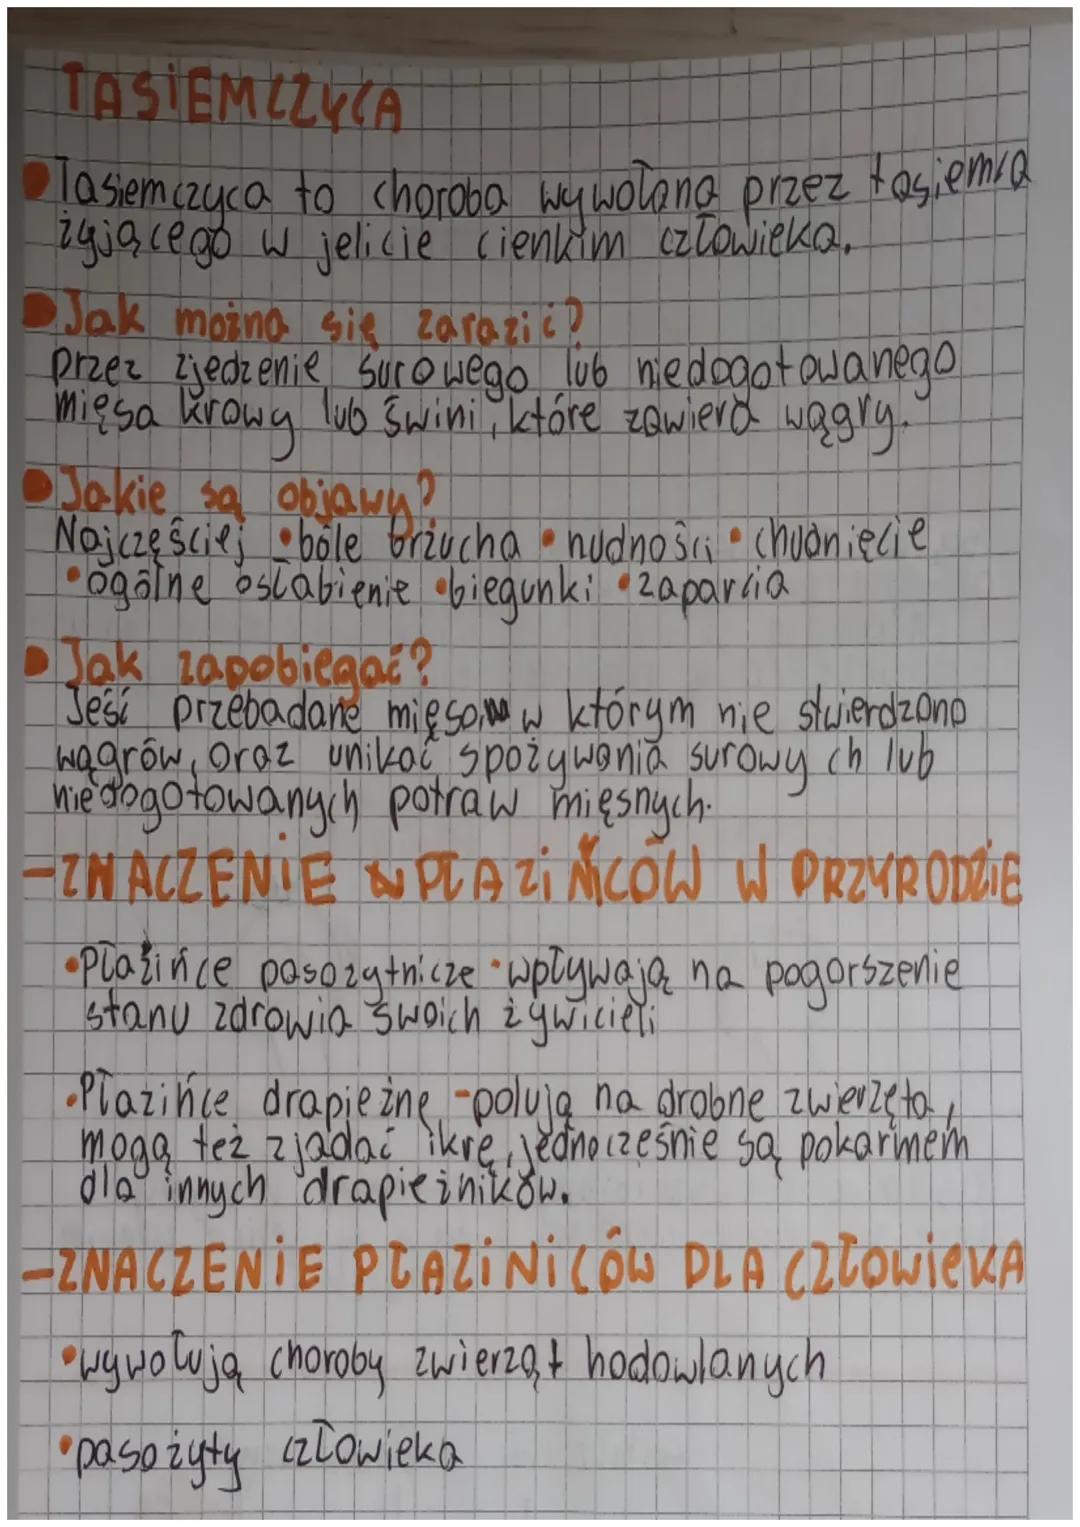 TASIEMCZYCA
Tasiemczyca to choroba wywołana przez tasiemca
żyjącego w jelicie cienkim człowieka.
Jak można się zarazić?
przez zjedzenie surowego lub niedogotowanego
mięsa krowy lub świni, które zawiera wągry.
Jakie są objawy?
Najczęściej •bóle brzucha •nudności •chudnięcie
•ogólne osłabienie •biegunki •zaparcia
Jak zapobiegać?
Jeść przebadane mięso w którym nie stwierdzono
wągrów, oraz unikać spożywania surowych lub
niedogotowanych potraw mięsnych.
-ZNACZENIE PŁAZIŃCÓW W PRZYRODZIE
•Płazińce pasożytnicze •wpływają na pogorszenie
stanu zdrowia swoich żywicieli
•Płazińce drapieżne -polują na drobne zwierzęta,
mogą też zjadać ikrę, jednocześnie są pokarmem
dla innych drapieżników.
-ZNACZENIE PŁAZINICÓW DLA CZŁOWIEKA
•wywołują choroby zwierząt hodowlanych
•pasożyty człowieka